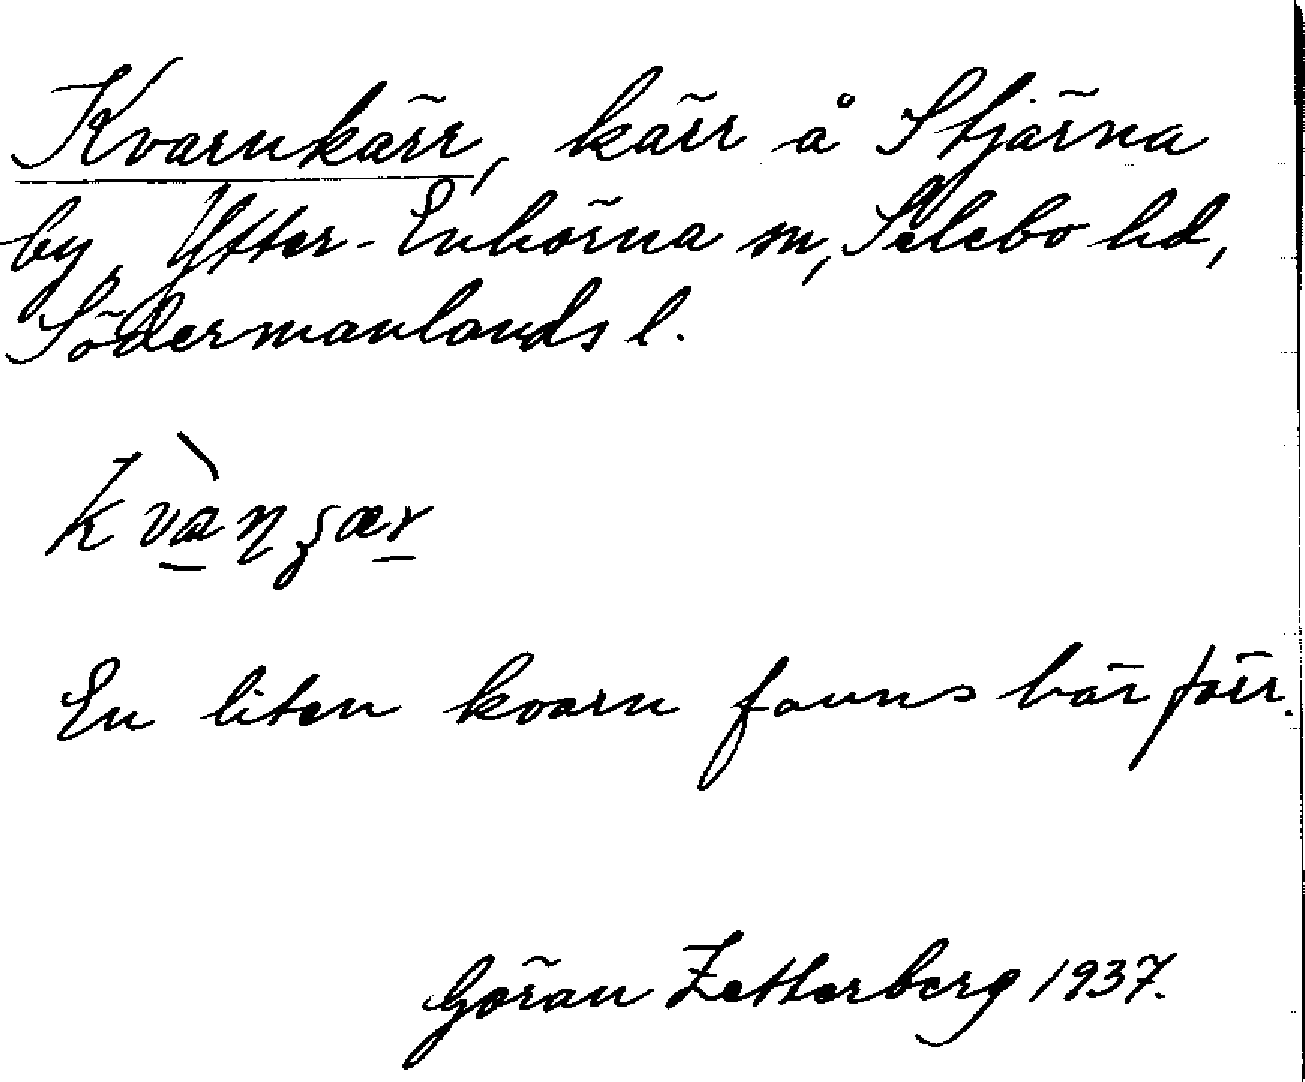 Kvarnkärr, kärr å Stjärna
by, Ytter-Enhörna sn, Selebo hd,
Södermanlands l.
En liten kvarn fanns här förr.
Göran Zetterberg 1937.